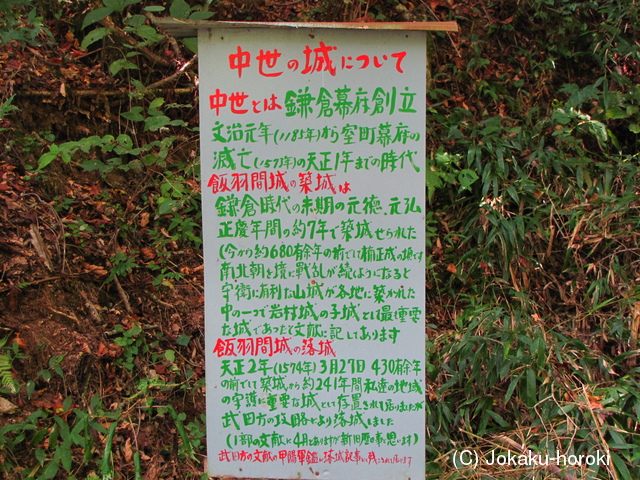 中世の城について
中世とは鎌倉幕府創立
文治元年(1185年)から室町幕府の
滅亡(1573年)の天正1年までの時代
飯羽間城の築城は
鎌倉時代の末期の元徳、元弘
正慶年間の約7年で築城せられた
(今から約680有余年の前でして楠正成の頃です
南北朝を境に戦乱が続くようになると
守衛に有利な山城が各地に築かれた
中の一つで岩村城の子城として最重要
な城であったと文献に記してあります
飯羽間城の落城
天正2年(1574年)3月27日 430有余年
の前でして築城から約241年間私達の地域
の守護に重要な城として存置されて居りましたが
武田方の攻略により落城しました
(1部の文献に4月とありますが新旧歴の事と思います)
武田方の文献の甲陽軍鑑に落城記事が
(C) Jokaku-horoki